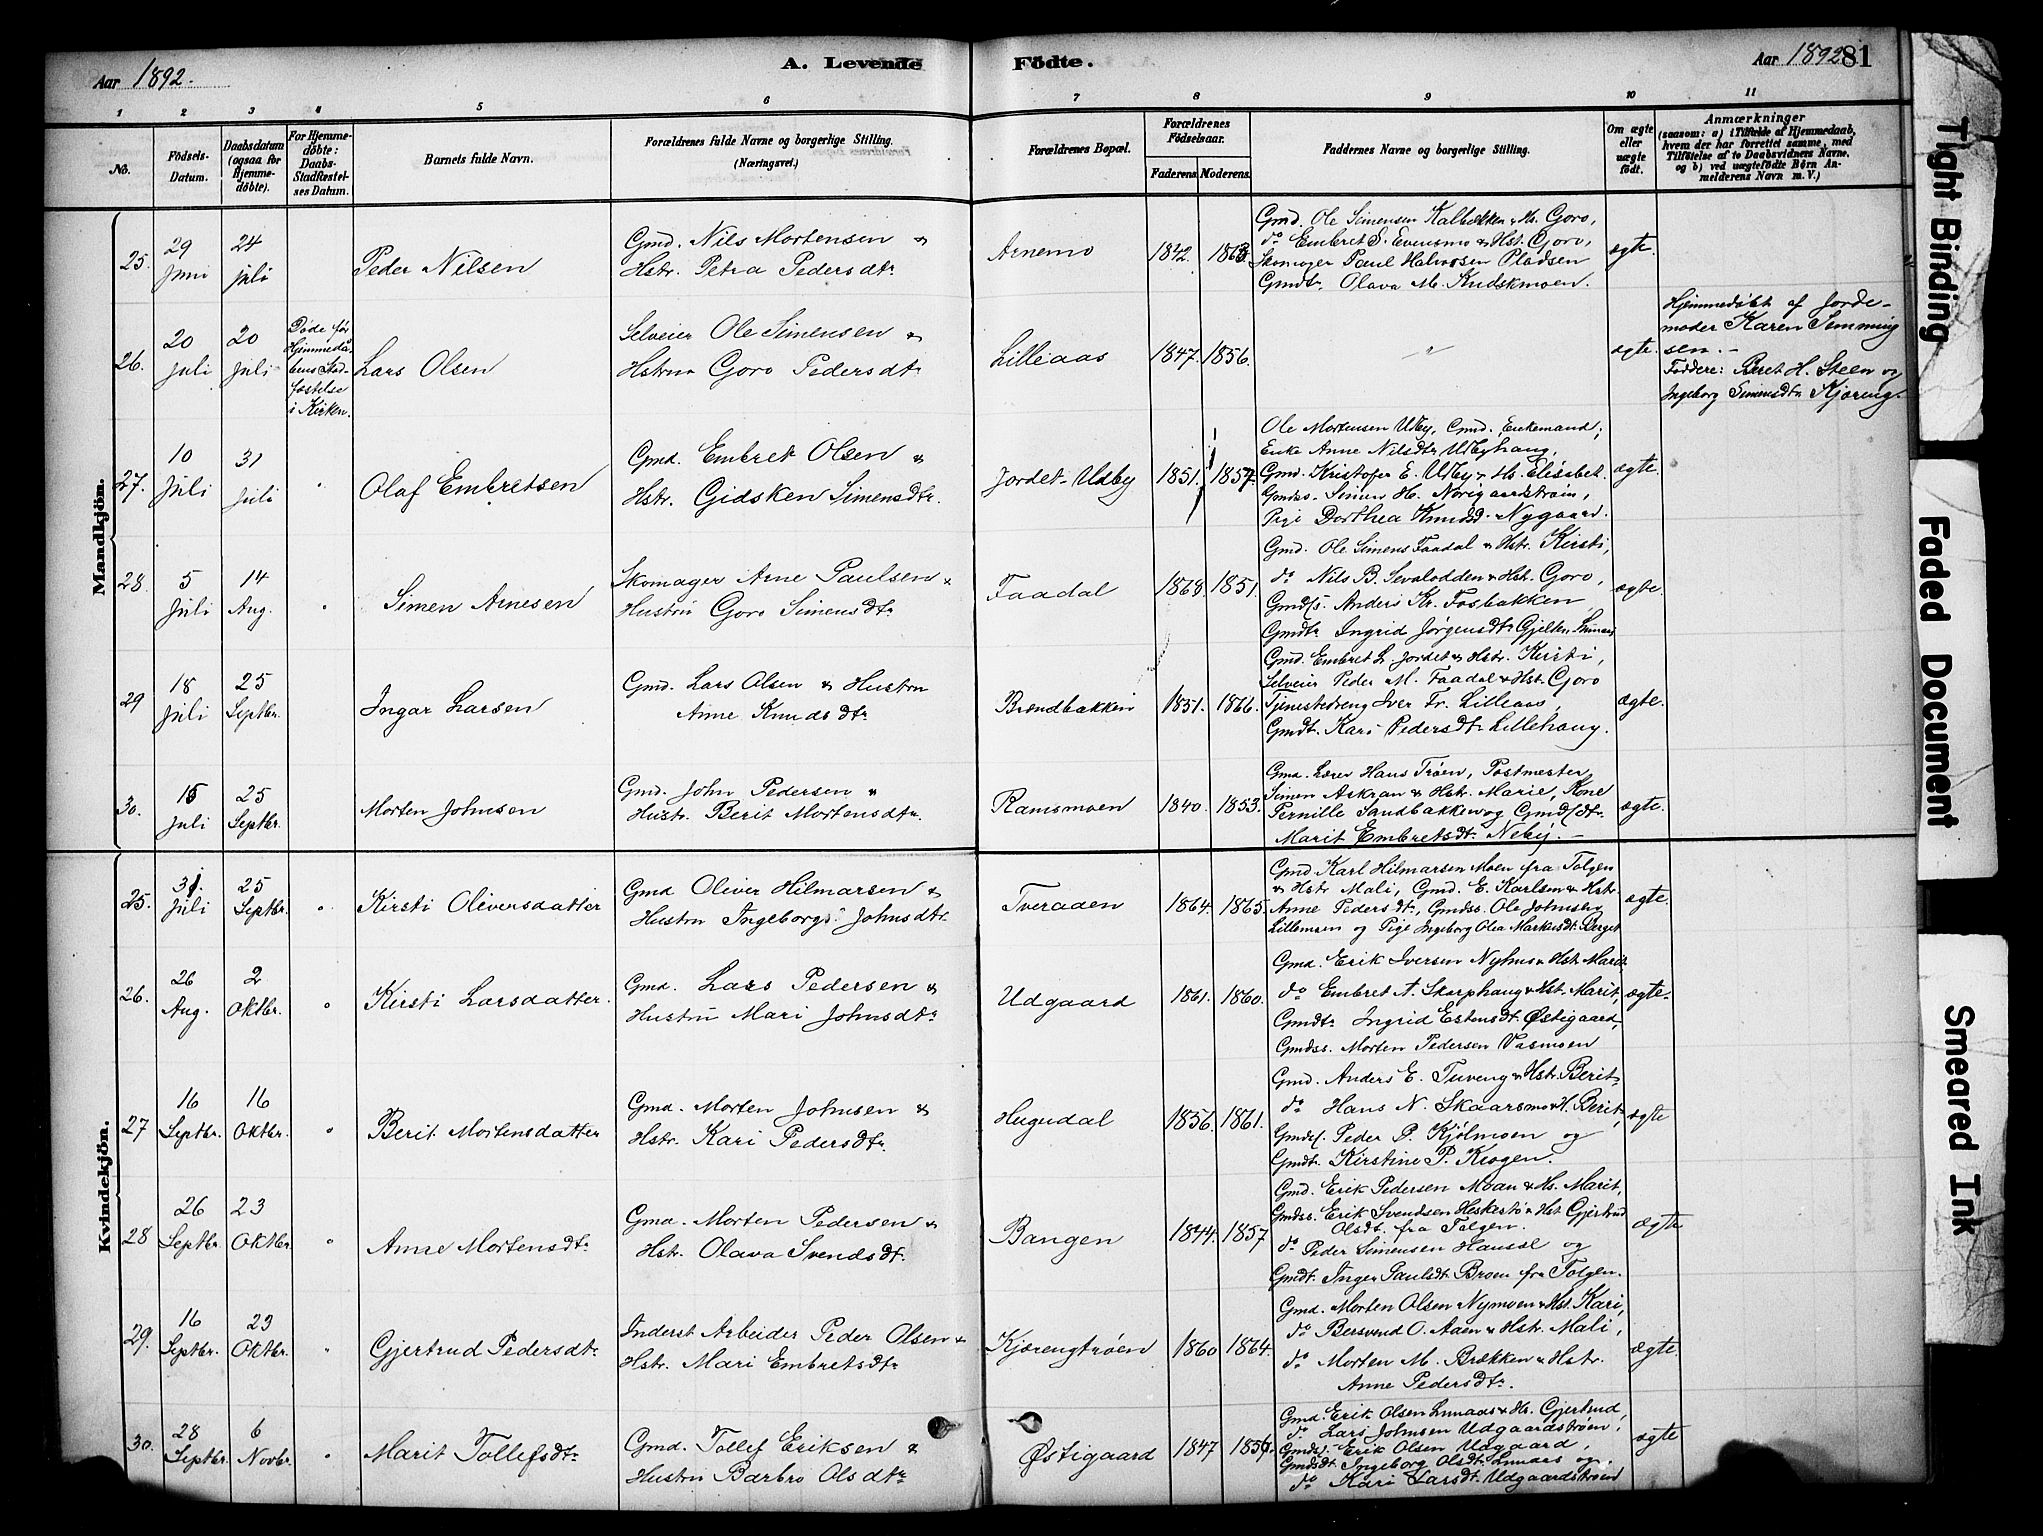 Aar 1892.
A. Levende Födte.
Aar 1892
81
1 2 3 4 5 6 7 8 9 10 11
No.
Födsels-
Datum.
Daabsdatum
(ogsaa for
Hjemme-
döbte).
For Hjemme-
döbte:
Daabs-
Stadfæstel-
ses Datum.
Barnets fulde Navn.
Forældrenes fulde Navne og borgerlige Stilling.
(Næringsvei.)
Forældrenes Bopæl.
Forældrenes
Födselsaar.
Faderens. Moderens.
Faddernes Navne og borgerlige Stilling.
Om ægte
eller
uægte
födt.
Anmærkninger
(saasom: a) i Tilfælde af Hjemmedaab,
hvem der har forrettet samme, med
Tilföielse af to Daabsvidners Navne,
og b) ved uægtefödte Börn An-
melderens Navn m. V.)
Mandkjön.
25. 29 Juni
24 juli
Peder Nilsen
Gmd. Nils Mortensen &
Hstr. Petra Pedersdtr
Arnemo
1842. 1863.
Gmd. Ole Simensen Kalbækken & Hs. Goro,
do Embret S. Evensmo & Hst. Goro,
Skomager Paul Halvorsen Pladsen
Gmdtr. Olava M. Kudskmoen.
ægte.
26. 20 juli
20 juli
Døde før
Hjemmedaa
bens Stad-
fæstelse
i Kirken.
Lars Olsen
Selveier Ole Simensen &
Hstru Goro Pedersdtr
Lilleaas
1847. 1856.
"
ægte.
Hjemmedøbt af Jorde-
moder Karen Semming
sen.-
Faddere: Beret H. Steen og
Ingeborg Simensdtr Kjøreng.
27. 10 Juli
31 Juli
"
Olaf Embretsen
Gmd. Embret Olsen &
Hstr. Gidsken Simensdtr.
Jordet-Udby
1851. 1857.
Ole Mortensen Udby, Gmd. Enkemand;
Enke Anne Nilsdtr Udbyhaug,
Gmd. Kristofer E. Udby & Hs. Elisabet.
Gmdss. Simen H. Norigaardstrøen,
Pige Dorthea Knudsd. Nygaard.
ægte.
28. 5 Juli
14 Aug.
"
Simen Arnesen
Skomager Arne Paulsen &
Hustru Goro Simensdtr
Faadal
1868. 1851.
Gmd. Ole Simens Faadal & Hstr. Kirsti,
do Nils B. Sevalodden & Hst. Goro,
Gmdss. Anders Kr. Fosbakken
Gmdtr Ingrid Jørgensdtr Gjelten
ægte.
29 18 Juli
25 Septbr.
Ingar Larsen
Gmd. Lars Olsen & Hustru
Anne Knudsdtr
Brændbakken
1851. 1866.
Gmd. Embret L. Jordet & Hstr. Kirsti,
Selveier Peder M. Faadal & Hst. Goro
Tjenestedreng Iver Fr. Lilleaas,
Gmdt. Kari Pedersdtr Lillehaug.
ægte.
30. 15 Juli
25 Septbr.
Morten Johnsen
Gmd. John Pedersen &
Hustr. Berit Mortensdtr.
Ramsmoen
1840. 1853.
Gmd. Lærer Hans Trøen, Postmester
Simen Askran & Hstr. Marie, Kone
Pernille Sandbakken og Gmdsdtr.
Marit Embretsdt. Neby.-
ægte.
Kvindekjön.
25. 31. Juli
25 Septbr.
"
Kirsti Oliversdatter
Gmd Oliver Hilmarsen &
Hustru Ingeborg Johnsdtr
Tveraaen
1864. 1865.
Gmd. Karl Hilmarsen Moen fra Tolgen
& Hstr Mali, Gmd. E. Karlsen & Hstr
Anne Pedersdtr, Gmdss. Ole Johnsen
Lillemoen og Pige Ingeborg Olea Markusdt. Berget
ægte.
26. 26 Aug.
2 Oktbr.
"
Kirsti Larsdatter.
Gmd. Lars Pedersen &
Hustru Mari Johnsdtr
Udgaard
1861. 1860.
Gmd. Erik Iversen Nyhus & Hst. Marit
do Embret A. Skarphaug & Hst. Marit,
Gmdtr Ingrid Estensdt. Østigaard,
Gmdss. Morten Pedersen Vasmoen
ægte.
27 16 Septbr.
16 Oktbr.
"
Berit Mortensdatter
Gmd. Morten Johnsen &
Hstr. Kari Pedersdtr
Hugudal
1856. 1861.
Gmd. Anders E. Tuveng & Hstr. Berit,
do Hans N. Skaarsmo & H. Berit,
Gmdss. Peder P. Kjølmoen og
Gmdt. Kirstine P. Krogen.
ægte
28 26 Septbr.
23 Oktbr.
"
Anne Mortensdtr
Gmd. Morten Pedersen &
Hstr. Olava Svendsdtr.
Bangen
1844. 1857
Gmd. Erik Pedersen Moan & Hs. Marit,
Gmdss. Erik Svendsen & Hst Gjertrud
Olsdt. fra Tolgen.
do Peder Simensen og
Gmdt. Inger Paulsdt. Broen fra Tolgen.
ægte
29. 16 Septbr.
23 Oktbr.
"
Gjertrud Pedersdtr
Inderst Arbeider Peder Olsen &
Hstr. Mari Embretsdtr
Kjærengtrøen
1860 1864.
Gmd. Morten Olsen Nymoen & Hst. Kari,
do Bersvend O. Aaen & Hstr. Mali,
do Morten M. Brækken & Hstr.
Anne Pedersdtr.
ægte.
30. 28 Septbr.
6 Novbr.
"
Marit Tollefsdtr
Gmd. Tollef Eriksen &
Hustru Barbro Olsdtr
Østigaard
1847 1856.
Gmd. Erik Olsen Lunaas & Hs. Gjertrud,
do Lars Johnsen Udgaardstrøen,
Gmdss. Erik Olsen Udgaard,
Gmdsdt. Ingeborg Olsdt. Lunaas og
do Kari Larsdt. Udgaardstrøen
ægte
Tight Binding
Faded Document
Smeared Ink